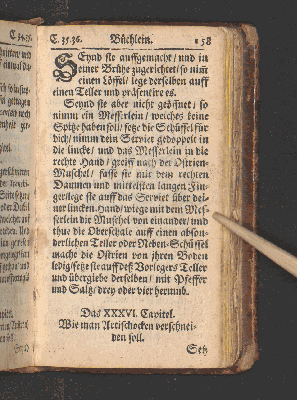 C. 35. 36. Büchlein. 158
SEynd sie auffgemacht / und in
seiner Brühe zugerichtet / so nim̃
einen Löffel / lege derselben auff
einen Teller und präsentire es.
Seynd sie aber nicht geöffnet / so
nimm ein Messerlein / welches keine
Spitze haben soll / setze die Schüssel für
dich / nimm dein Serviet gedoppelt in
die lincke / und das Messerlein in die
rechte Hand / greiff nach der Ostrien-
Muschel / fasse sie mit dem rechten
Daumen und mittelsten langen Fin-
ger / lege sie auff das Serviet über dei-
ner lincken Hand / wiege mit dem Mes-
serlein die Muschel von einander / und
thue die Oberschale auff einen abson-
derlichen Teller oder Neben-Schüssel
mache die Ostrien von ihren Boden
ledig / setze sie auff deß Vorlegers Teller
und übergiebe derselben / mit Pfeffer
und Saltz / drey oder vier herumb.
Das XXXVI. Capitel.
Wie man Artischocken verschnei-
den soll.
Setz